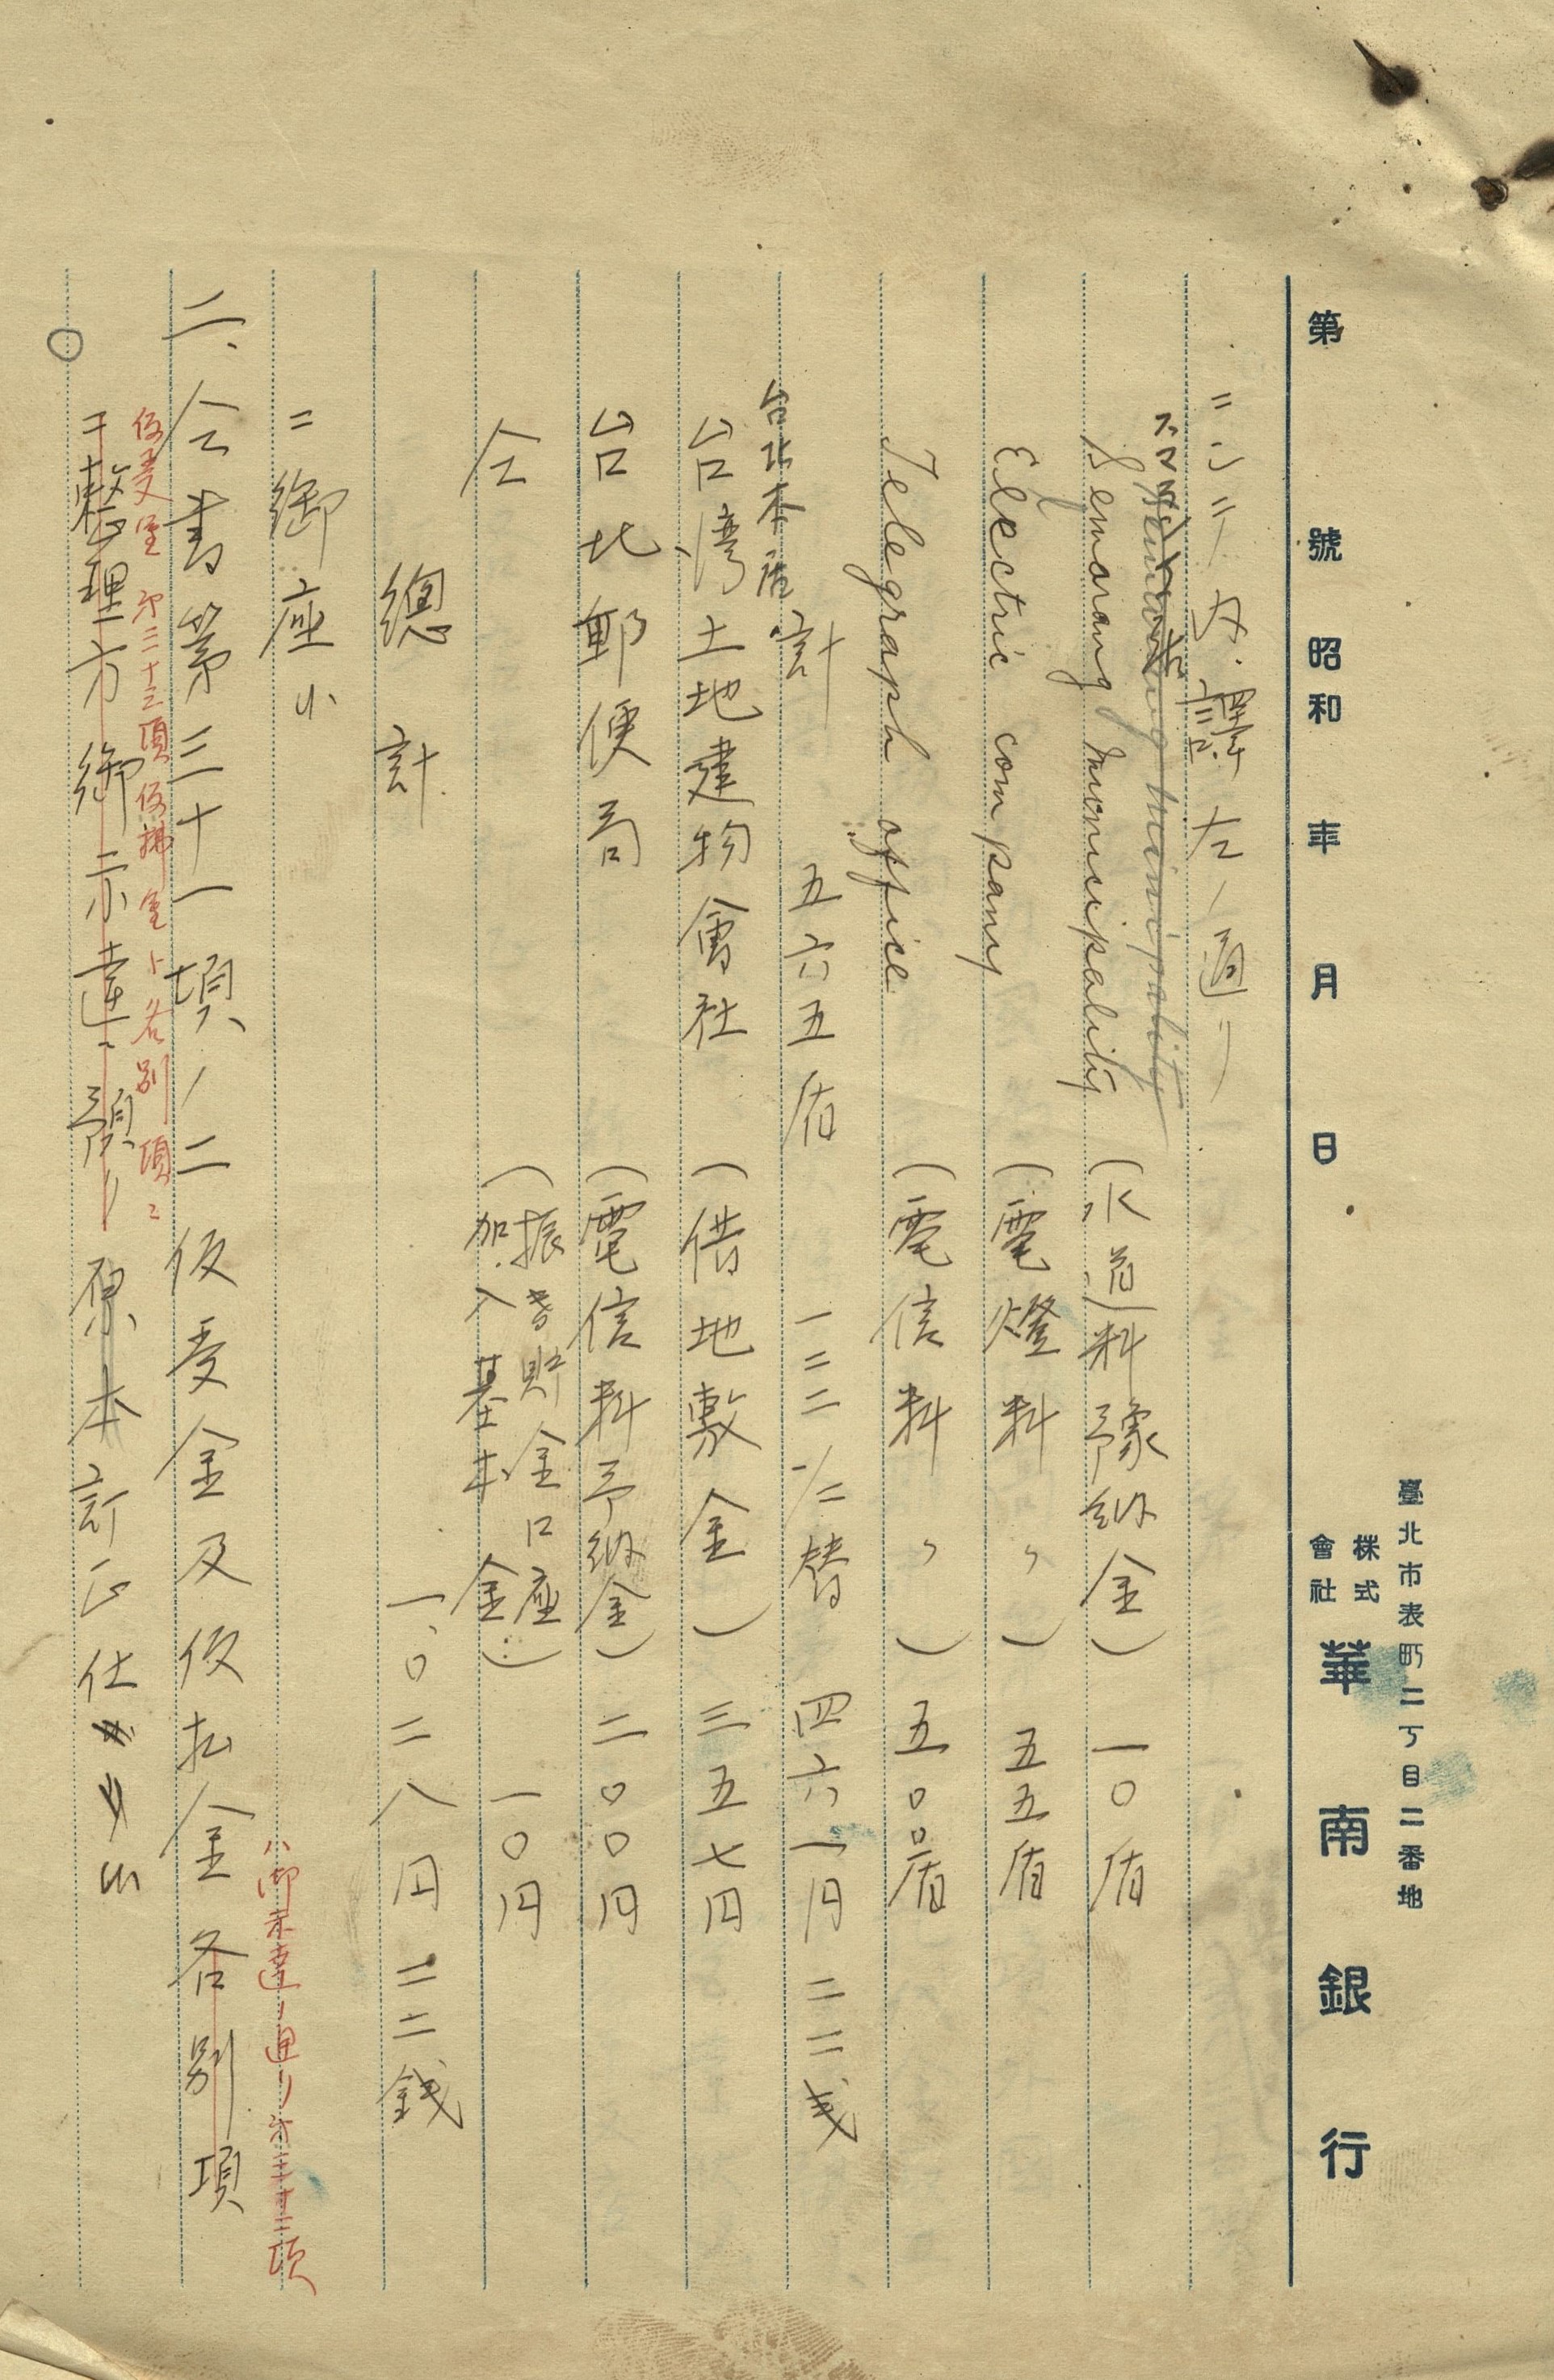 臺北市表町二丁目二番地
株式會社 華南銀行
第 號 昭和 年 月 日
ニシテ内譯左ノ通リ
スマラン Semarang Municipality
Semarang Municipality (水道料豫納金) 一〇盾
Electric company (電燈料 〃) 五五盾
Telegraph office (電信料 〃) 五〇〇盾
計 五六五盾 一二二 1/2替 四六一円二二戋
台北本店
台湾土地建物會社 (借地敷金) 三五七円
台北郵便局 (電信料予納金) 二〇〇円
仝 (振替貯金口座加入基本金) 一〇円
總計 一、〇二八円二二錢
ニ御座候
ハ御示達ノ通リ
二、仝書第三十一項ノ二仮受金及仮払金各別項
仮受金 第二十三項 仮拂金ト各別項ニ
ニ整理方御示達ニ預リ原本訂正仕リ